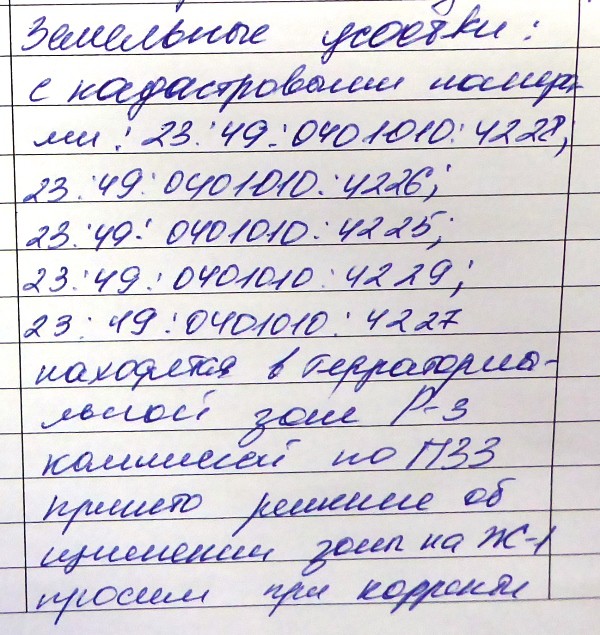 Земельные участки:
с кадастровыми номера
ми: 23:49:0401010:4228;
23:49:0401010:4226;
23:49:0401010:4225;
23:49:0401010:4229;
23:49:0401010:4227
находятся в территориа-
льной зоне Р-3
комиссией по ПЗЗ
принято решение об
изменении зоны на Ж-1
просим при корректи